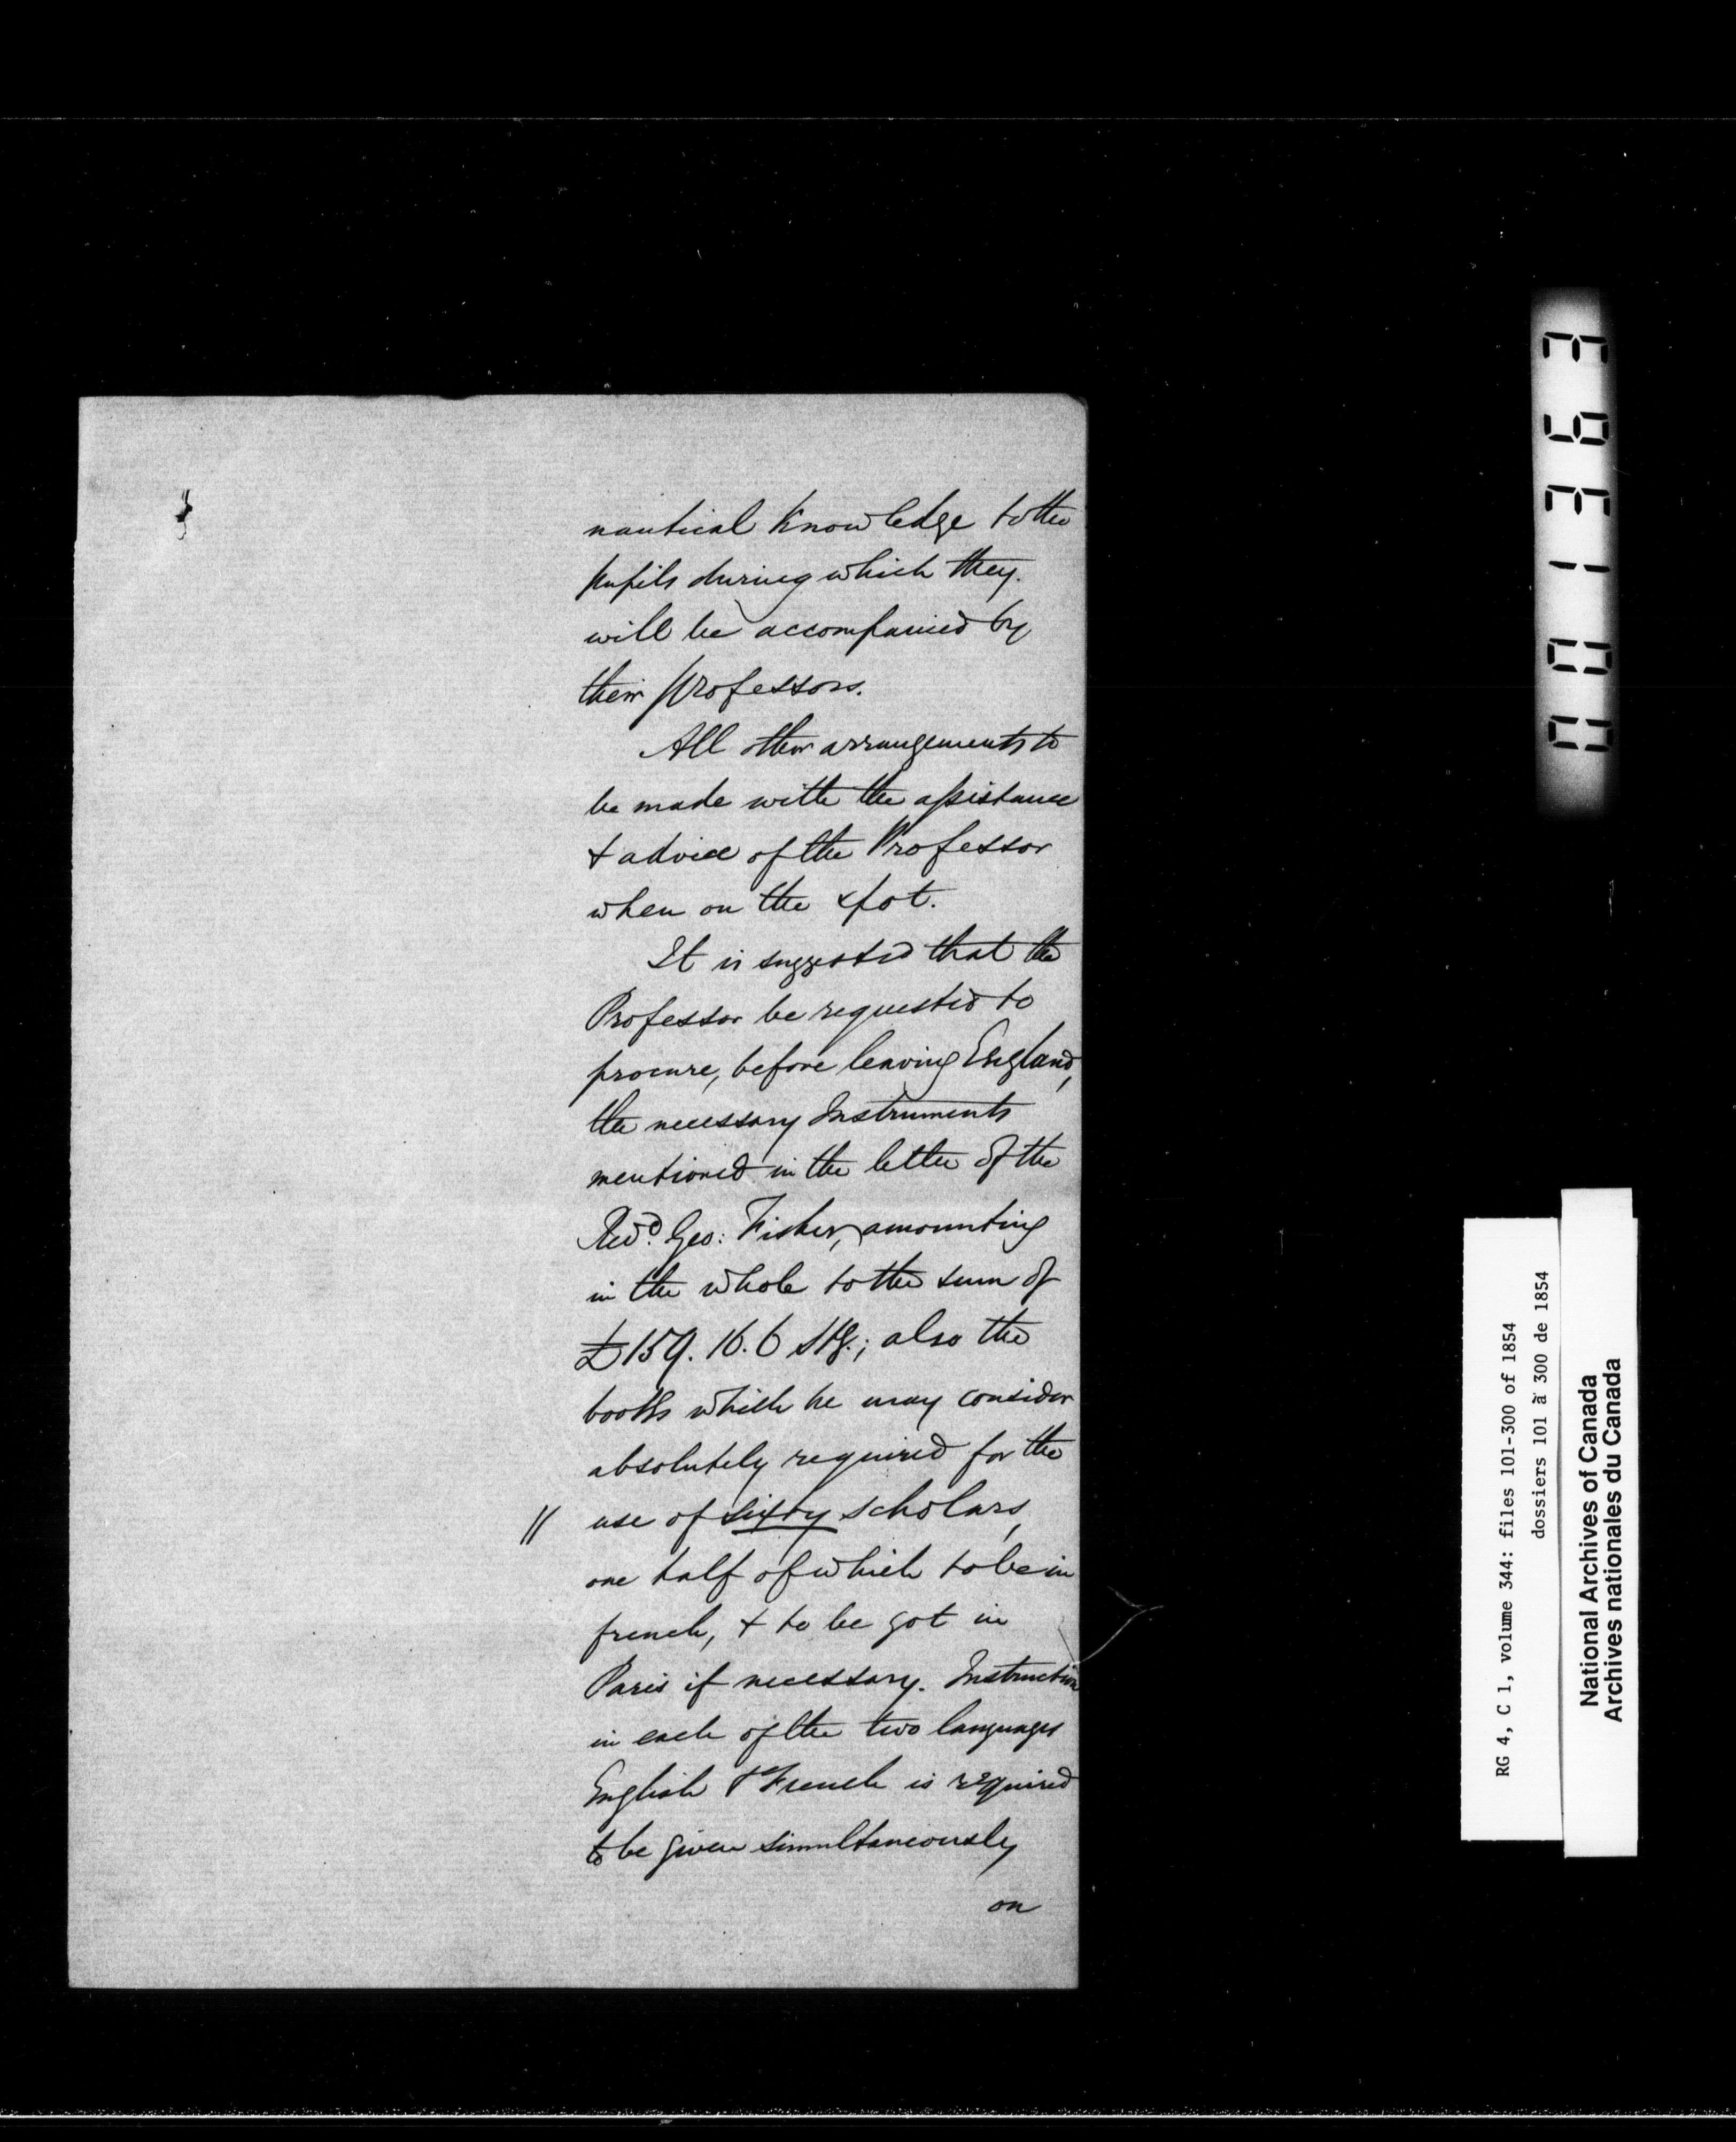 nautical knowledge to the
pupils during which they
will be accompanied by
their professors.
All other arrangements to
be made with the assistance
& advice of the Professor
when on the spot.
It is suggested that the
Professor be requested to
procure, before leaving England,
the necessary Instruments
mentioned in the letter of the
Revd. Geo: Fisher, amounting
in the whole to the sum of
£159.16.6 Stg.; also the
books which he may consider
absolutely required for the
// use of sixty scholars,
one half of which to be in
french, & to be got in
Paris if necessary. Instruction
in each of the two languages
English & French is required
to be given simultaneously
on
001363
RG 4, C 1, volume 344: files 101-300 of 1854
dossiers 101 à 300 de 1854
National Archives of Canada
Archives nationales du Canada